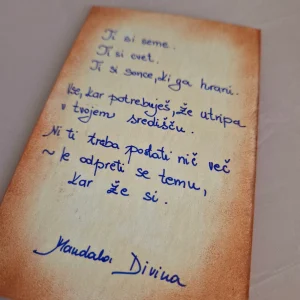 Ti si seme.
Ti si cvet.
Ti si sonce, ki ga hrani.
Vse, kar potrebuješ, že utripa
v tvojem središču.
Ni ti treba postati nič več
~ le odpreti se temu,
kar že si.
Mandala Divina